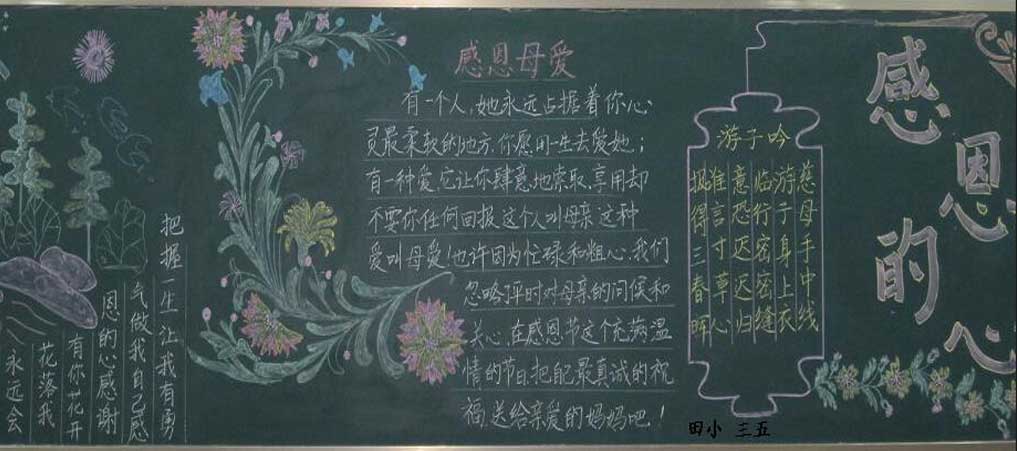 感恩的心
感恩母爱
有一个人,她永远占据着你心
灵最柔软的地方,你愿用一生去爱她;
有一种爱,它让你肆意地索取,享用却
不要你任何回报,这个人叫母亲,这种
爱叫母爱!也许因为忙禄和粗心,我们
忽略了平时对母亲的问候和
关心,在感恩节这个充满温
情的节日,把自己最真诚的祝
福,送给亲爱的妈妈吧!
游子吟
慈母手中线
游子身上衣
临行密密缝
意恐迟迟归
谁言寸草心
报得三春晖
把握一生让我有勇
气做我自己感
恩的心感谢
有你花开
花落我
永远会
田小 三五